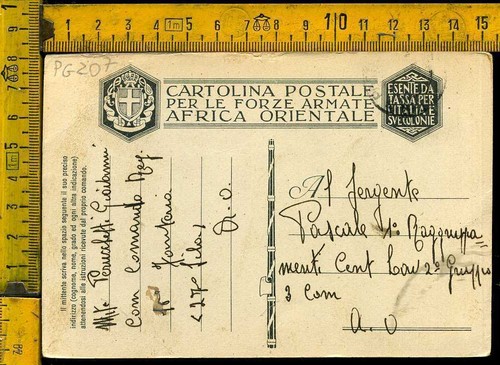 PG207
CARTOLINA POSTALE
PER LE FORZE ARMATE
AFRICA ORIENTALE
ESENTE DA
TASSA PER
L'ITALIA E
SUE COLONIE
Il mittente scriva nello spazio seguente il suo preciso
indirizzo (cognome, nome, grado ed ogni altra indicazione)
attenendosi alle istruzioni ricevute dal proprio comando.
Giovanni
Com Comando Reg.
Fanteria
A. O.
Al Sergente
Pascale 1° Raggruppa
menti Cent Cav 2° Gruppo
3 Com
A. O